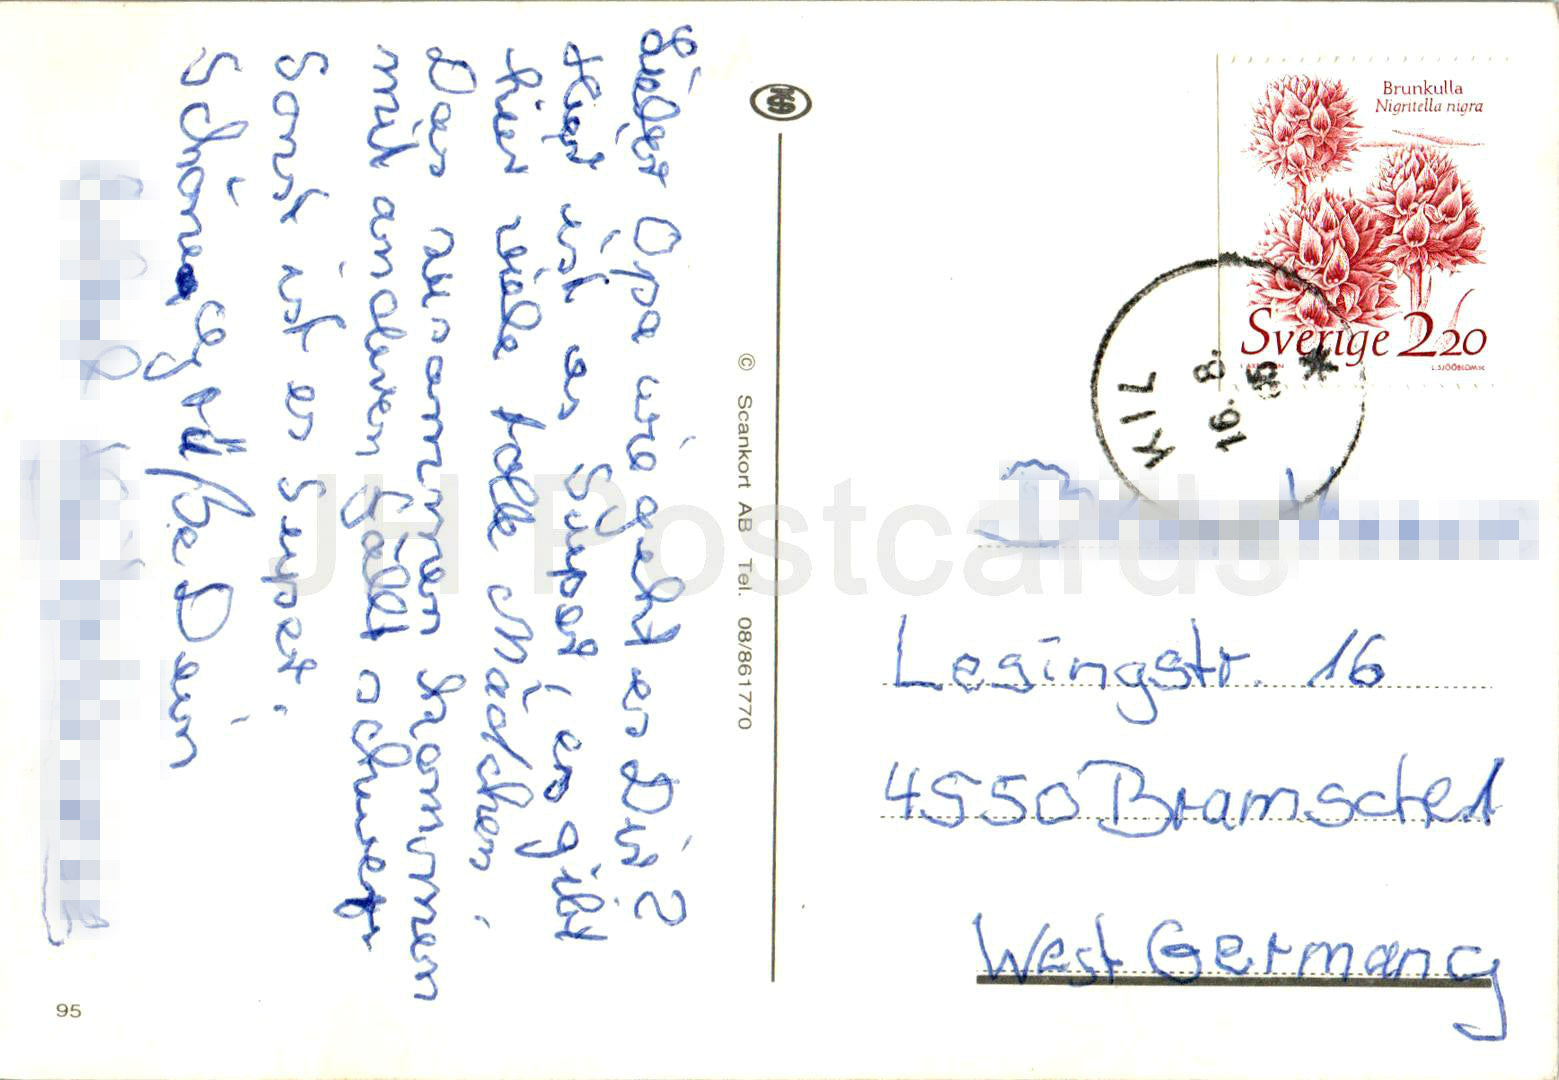 Lieber Opa wie geht es Dir?
Hier ist es Super, es gibt
hier viele tolle Mädchen.
Das zusammen kommen
mit andren fällt schwer
Sonst ist es Super.
Schöne grüße Dein
95
© Scankort AB Tel. 08/861770
Brunkulla
Nigritella nigra
Sverige 2.20
L.SJÖÖBLOM SC
KIL
16. 8.
85
*
Lesingstr. 16
4550 Bramsche 1
West Germany
JH Postcards